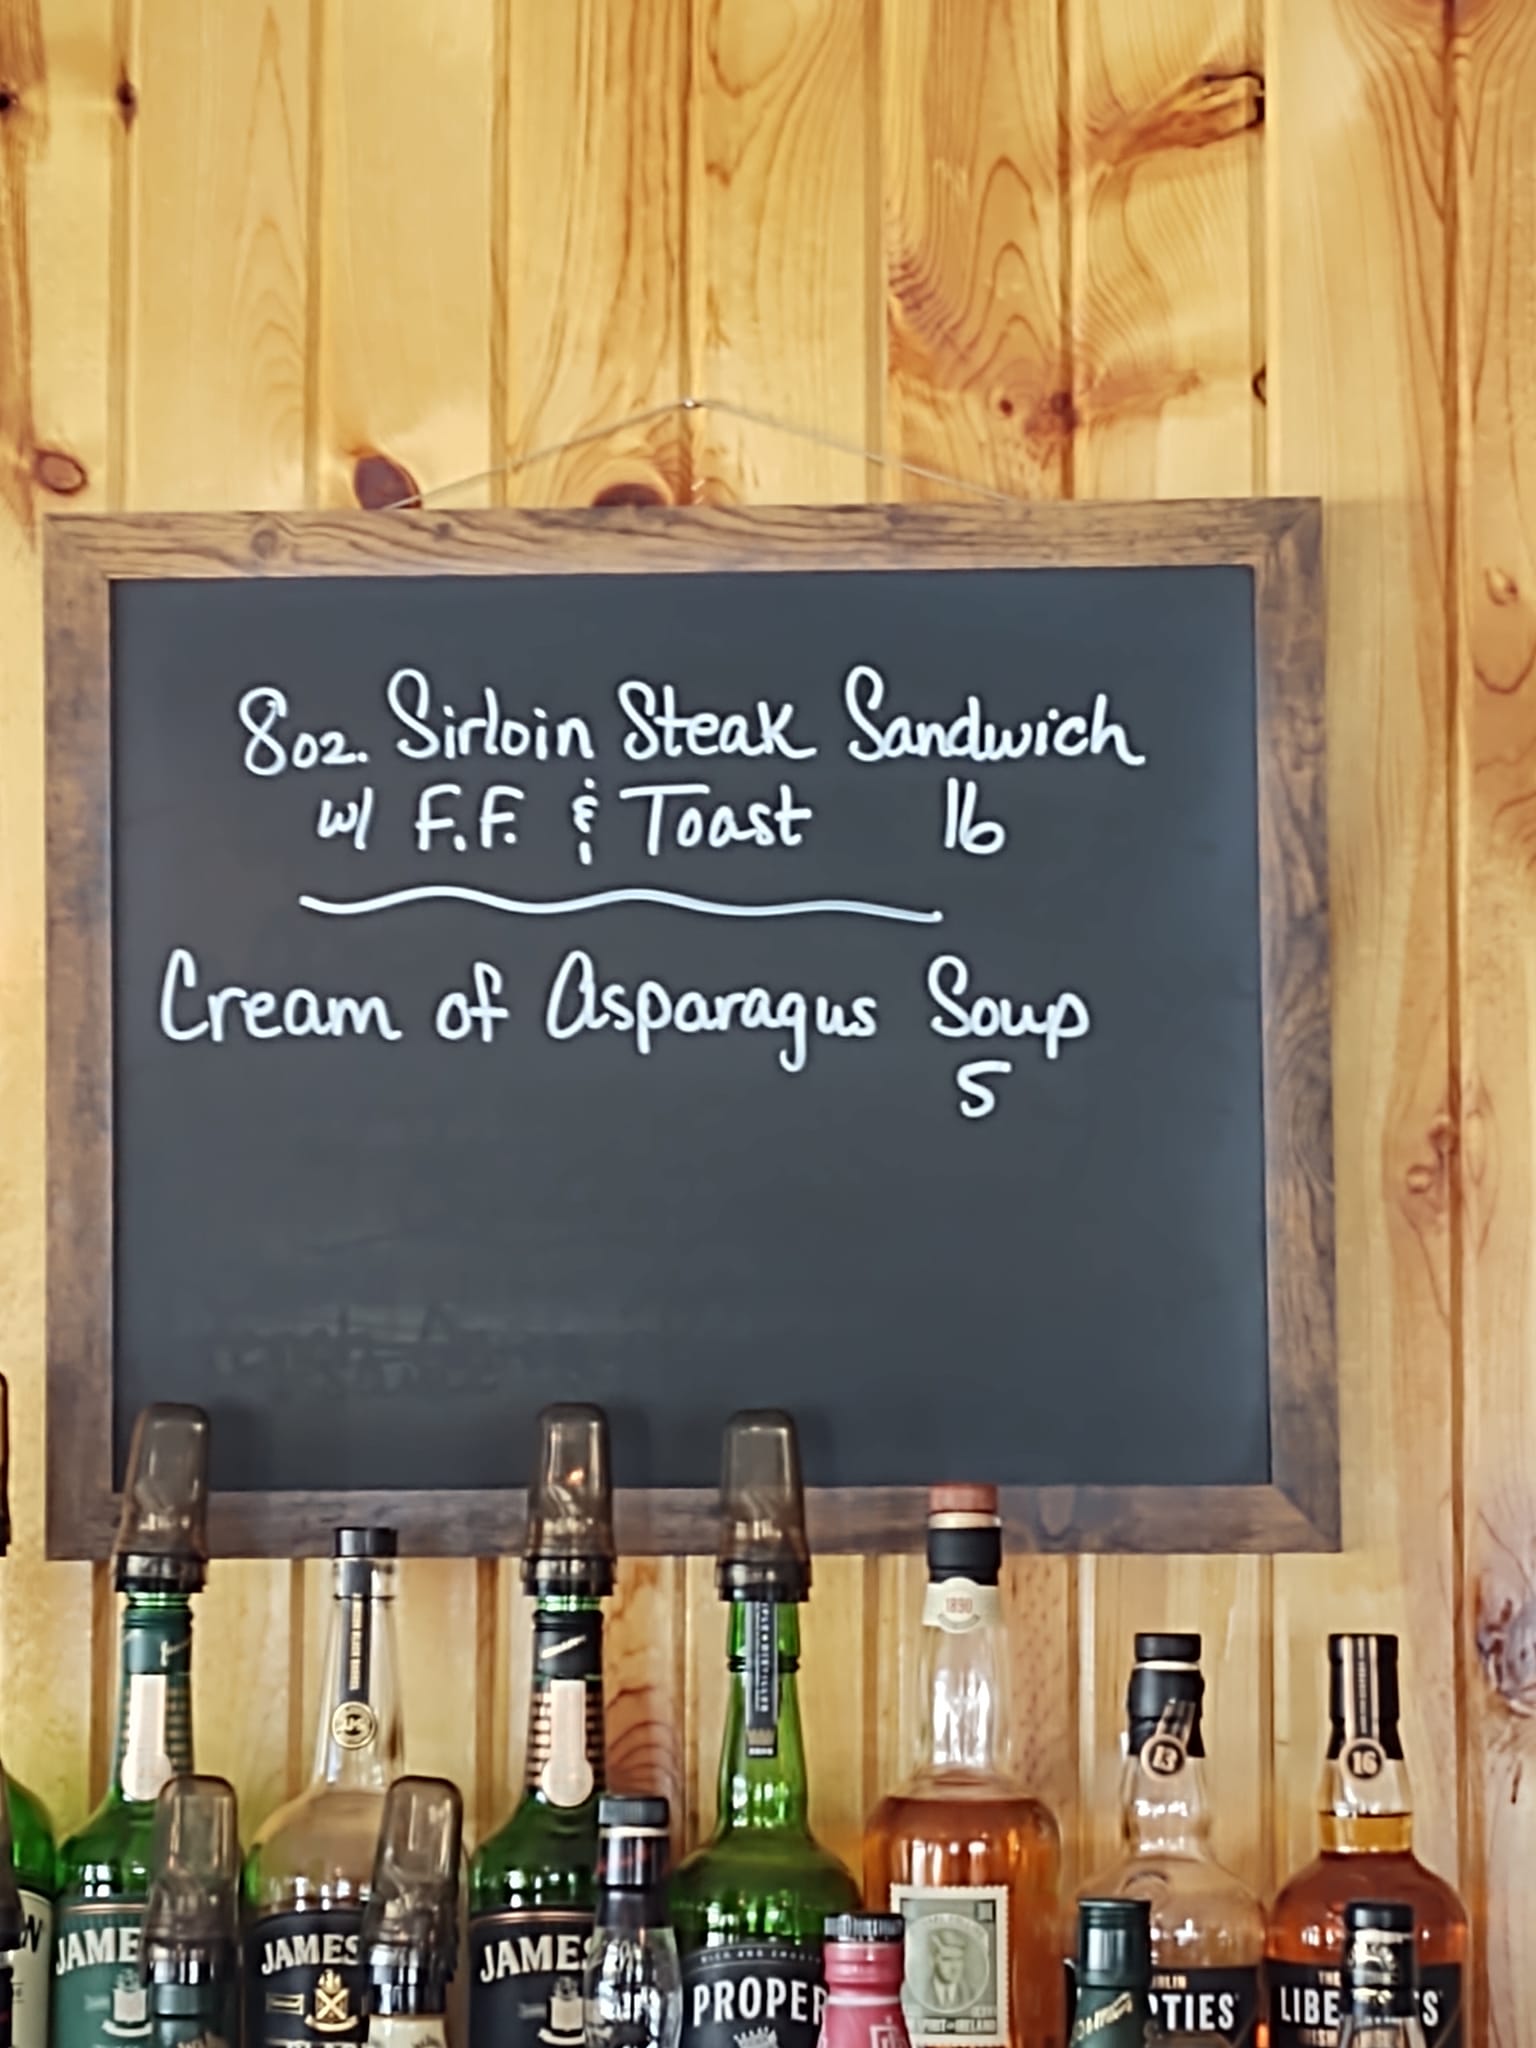 8oz. Sirloin Steak Sandwich
w/ F.F. & Toast 16
Cream of Asparagus Soup
5
1890
13
16
JAMES
JAMES
JAMES
PROPER
THE